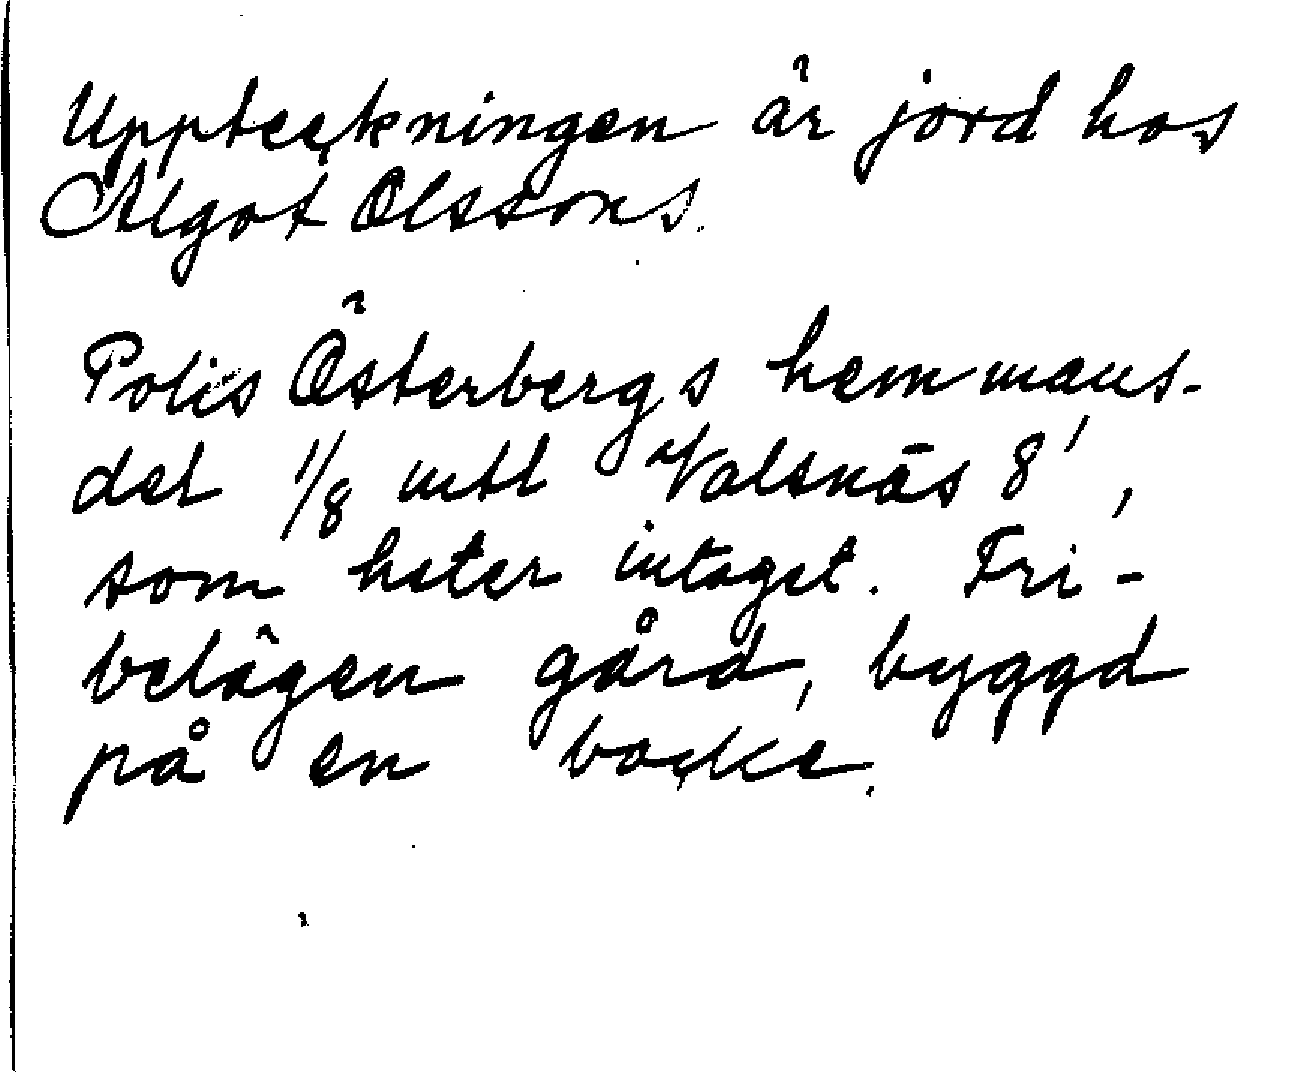 Uppteckningen är jord hos
Algot Olssons.
Polis Österbergs hemmans-
del 1/8 mtl Valsnäs 8¹,
som heter intaget. Fri-
belägen gård, byggd
på en backe.